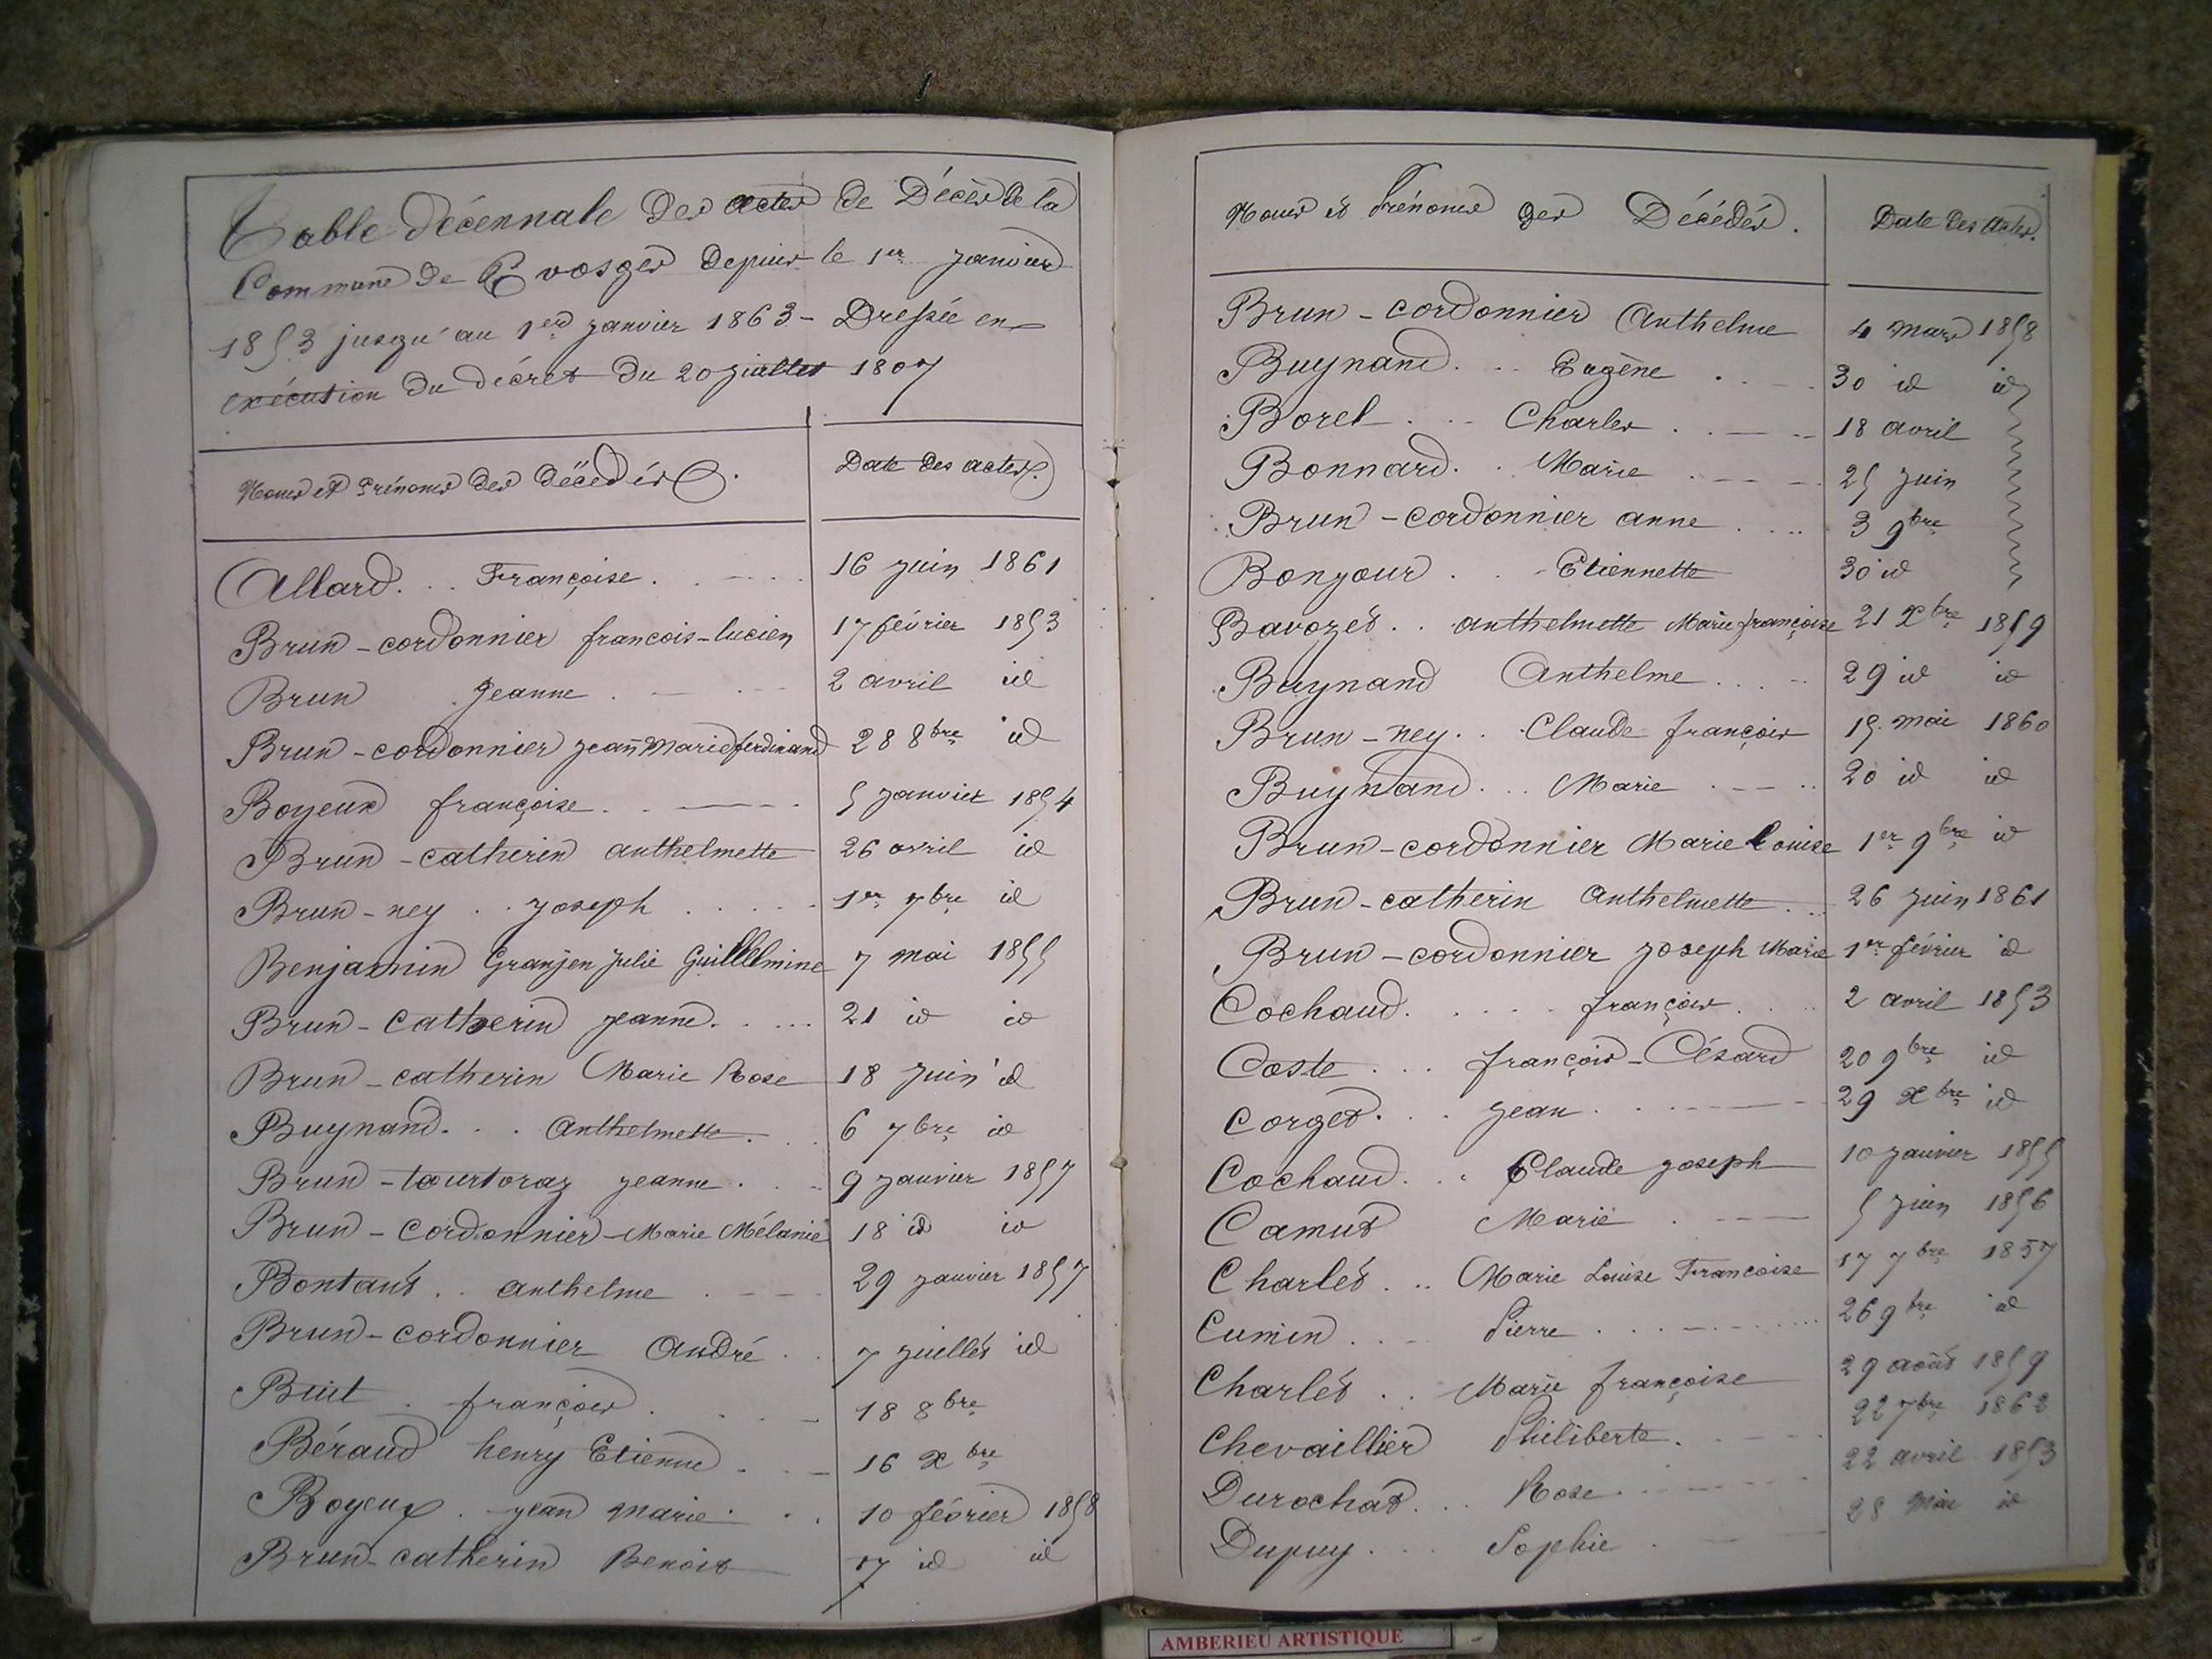 Table décennale des actes de Décès de la
Commune de Evosges depuis le 1er janvier
1853 jusqu'au 1er janvier 1863 - Dressée en
exécution du décret du 20 juillet 1807
Noms et Prénoms des décédés.
Date des actes.
Allard. . . Françoise. . . 16 juin 1861
Brun-cordonnier francois-lucien 17 février 1853
Brun Jeanne . 2 avril id
Brun-cordonnier jean marie ferdinand 28 8bre id
Boyeux françoise. . . 5 janvier 1854
Brun-catherin anthelmette 26 avril id
Brun-ney . . joseph . . . . 1er 7bre id
Benjamin Granjen julie Guillelmine 7 mai 1855
Brun-Catherin jeanne. . . . 21 id id
Brun-catherin Marie Rose 18 juin id
Buynand. . . Anthelmette. . 6 7bre id
Brun-tourtoraz jeanne . . 9 janvier 1857
Brun-Cordonnier-Marie Mélanie 18 id id
Bontant . . anthelme . 29 janvier 1857
Brun-cordonnier André . . 7 juillet id
Buit . françois . . . 18 8bre
Béraud henry Etienne . 16 Xbre
Boyeux . jean marie . . . 10 février 1858
Brun-catherin Benoit 17 id id
Noms et Prénoms des Décédés.
Date des actes.
Brun-cordonnier Anthelme 4 mars 1858
Buynand. . . Eugène . . 30 id id
Borel . . . Charles . . 18 avril
Bonnard. . Marie 25 juin
Brun-cordonnier anne . . . 3 9bre
Bonjour . . . Etiennette 30 id
Bavozet . . anthelmette Marie françoise 21 Xbre 1859
Buynand Anthelme . . . 29 id id
Brun-ney . . Claude françois 15 mai 1860
Buynand. . . Marie . . 20 id id
Brun-cordonnier Marie Louise 1er 9bre id
Brun-catherin Anthelmette . . 26 juin 1861
Brun-cordonnier joseph Marie 1er février id
Cochaud. . . . . françois . . 2 avril 1853
Coste . . . françois-César 20 9bre id
Corget. . . jean . 29 Xbre id
Cochaud. . . Claude joseph 10 janvier 1855
Camus Marie . 5 juin 1856
Charlet . . . Marie Louise Francoise 17 7bre 1857
Cumin . . Pierre . . . 26 9bre id
Charlet . . Marie françoise 29 août 1859
Chevaillier Philiberte. 22 7bre 1862
Durochat. . . Rose . 22 avril 1853
Dupuy. . . Sophie . 28 Mai id
AMBERIEU ARTISTIQUE